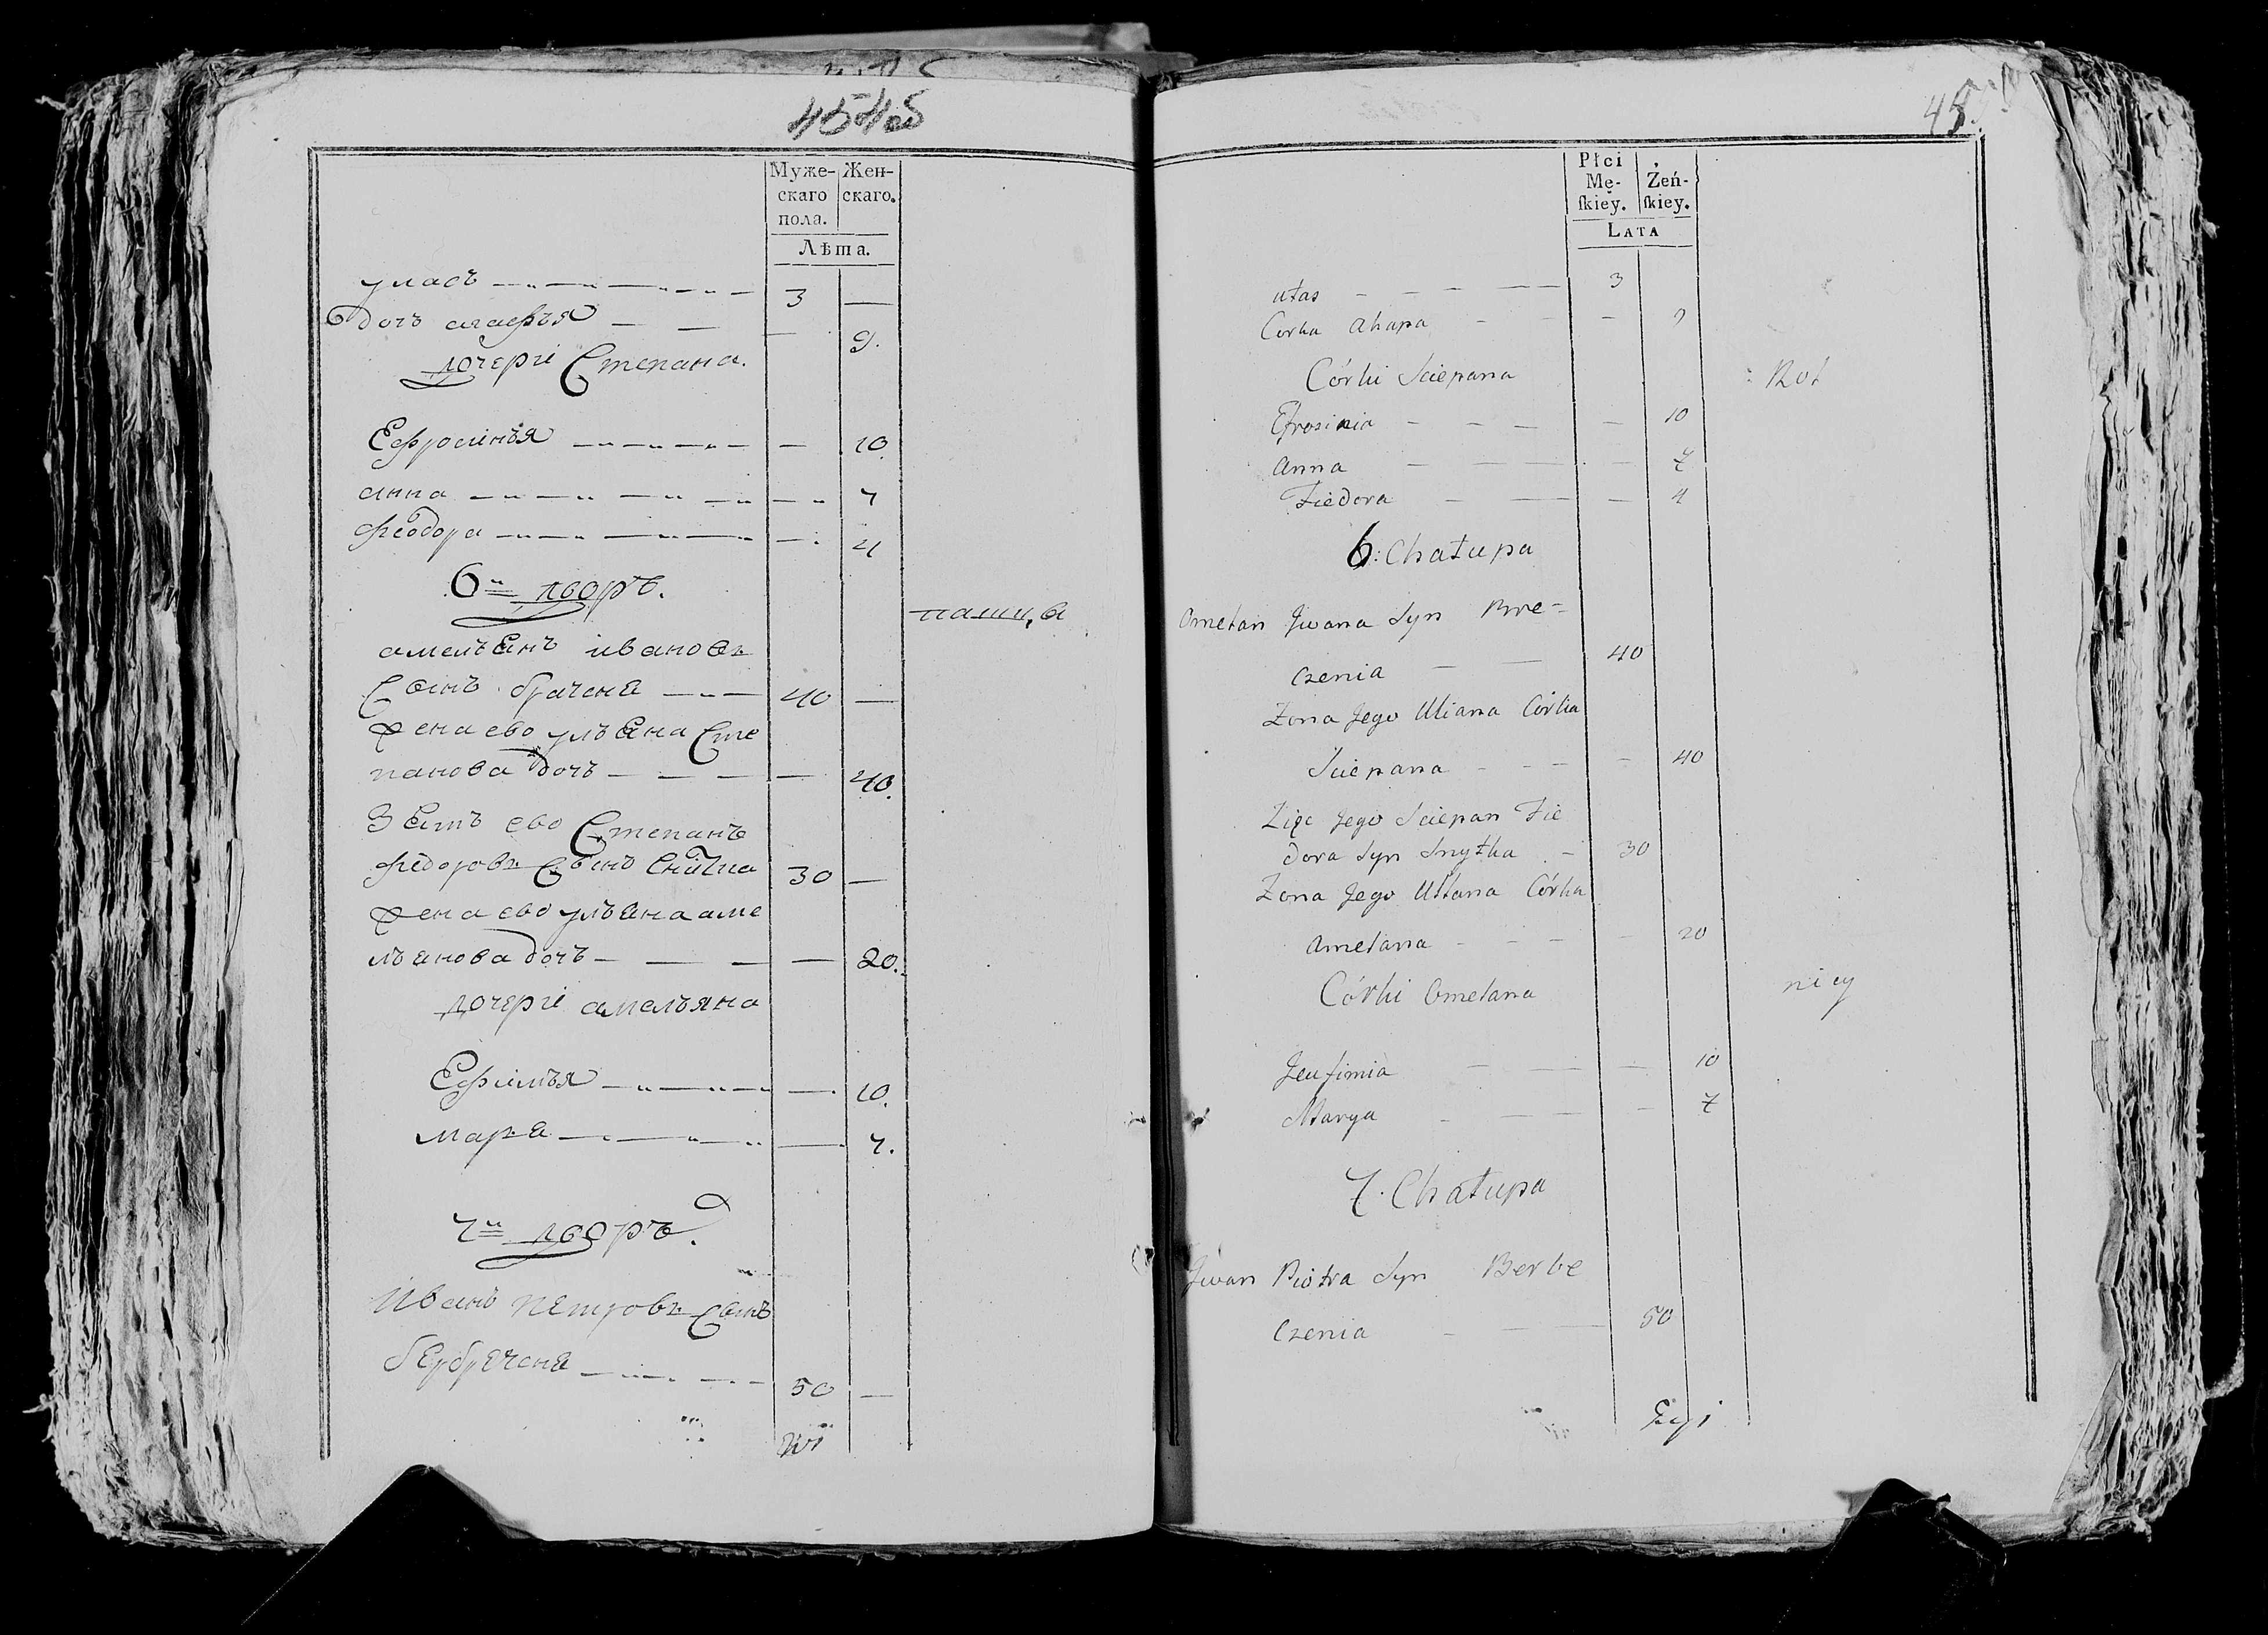 4545
Муже-
скаго
пола.
Жен-
скаго.
Лѣта.
уласъ 3 —
вдочъ агафъя — 9.
дочергі Степана.
Ефросінъя — 10.
анна — 7
феодора — 4
6й дворъ.
амелъянъ ивановъ
Сынъ браченя 40 —
жена ево улъяна Сте
панова дочъ — 40.
Зятъ ево Степанъ
федоровъ Сынъ
30 —
жена ево улъяна аме
лъянова дочъ — 20.
дочергі амелъяна
Ефімъя — 10.
маръя — 7.
7й дворъ.
Иванъ петровъ Сынъ
бербеченя 50 —
45
Płci
Mę-
ſkiey.
Żeń-
ſkiey.
LATA
ułas 3
Corka Ahapa — 9
Córki Sciepana
Rot
Efrosinia — 10
Anna — 7
Fiedora — 4
6: Chałupa
Omelan Jwana Syn Bre-
czenia 40
Zona Jego Uliana Córka
Sciepana — 40
Zięc Jego Sciepan Fie
dora Syn Snytka 30
Zona Jego Ullana Córka
Amelana — 20
Córki Omelana
nicy
Jeufimia — 10
Marya — 7
7. Chałupa
Jwan Piotra Syn Berbe
czenia 50